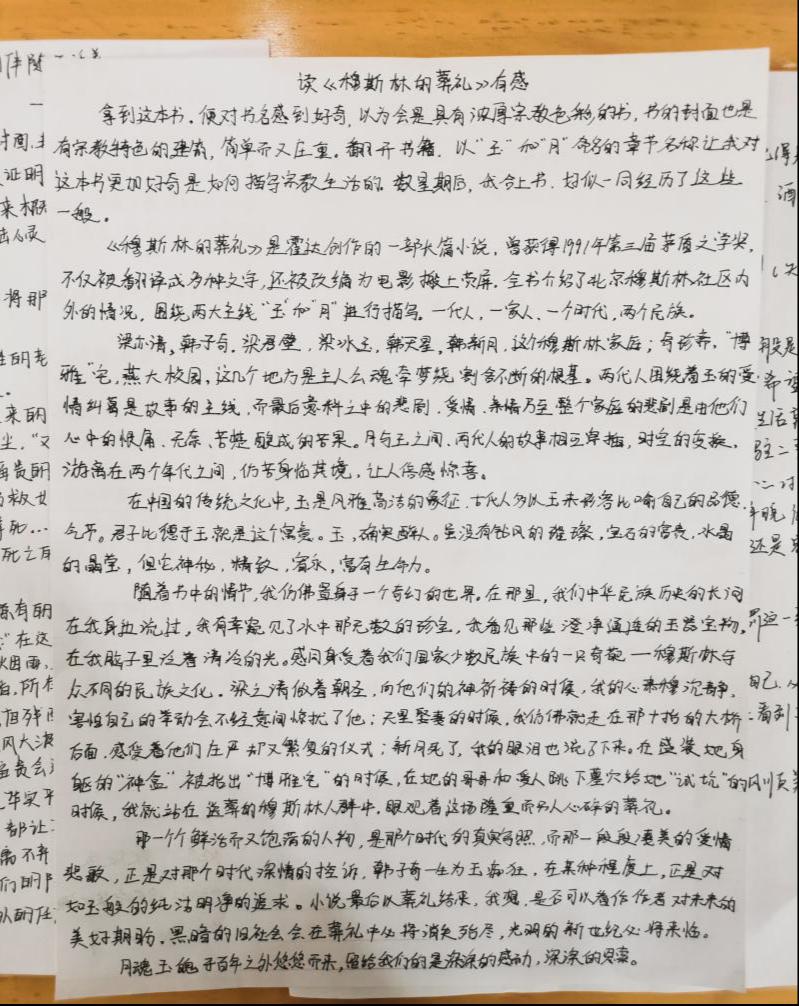 读《穆斯林的葬礼》有感
拿到这本书,便对书名感到好奇,以为会是具有浓厚宗教色彩的书,书的封面也是
有宗教特色的建筑,简单而又庄重。翻开书籍,以"玉"和"月"命名的章节名称让我对
这本书更加好奇是如何描写宗教生活的。数星期后,我合上书,好似一同经历了这些
一般。
《穆斯林的葬礼》是霍达创作的一部长篇小说,曾获得1991年第三届茅盾文学奖,
不仅被翻译成多种文字,还被改编为电影搬上荧屏。全书介绍了北京穆斯林社区内
外的情况,围绕两大主线"玉"和"月"进行描写。一代人,一家人,一个时代,两个民族。
梁亦清,韩子奇,梁君璧,梁冰玉,韩天星,韩新月,这个穆斯林家庭;奇珍斋,"博
雅"宅,燕大校园,这几个地方是主人公魂牵梦绕割舍不断的根基。两代人围绕着玉的爱
情纠葛是故事的主线,而最后意料之中的悲剧,爱情、亲情乃至整个家庭的悲剧是由他们
心中的恨痛、无奈、苦楚酿成的苦果。月与玉之间,两代人的故事相互穿插,时空的变换,
游离在两个年代之间,仍若身临其境,让人伤感惊喜。
在中国的传统文化中,玉是风雅高洁的象征,古代人多以玉来形容比喻自己的品德
气节。君子比德于玉就是这个寓意。玉,确实醉人。虽没有钻风的璀璨,宝石的富贵,水晶
的晶莹,但它神秘,精致,隽永,富有生命力。
随着书中的情节,我仿佛置身于一个奇幻的世界。在那里,我们中华民族历史的长河
在我身边流过,我有幸窥见了水中那无数的珍宝,我看见那些澄净通连的玉器宝物,
在我脑子里泛着清冷的光。感同身受着我们国家少数民族中的一只奇葩——穆斯林与
众不同的民族文化。梁亦清做着朝圣,向他们的神祈祷的时候,我的心肃穆沉静,
害怕自己的举动会不经意间惊扰了他;天星娶妻的时候,我仿佛就走在那十抬的大桥
后面,感受着他们庄严却又繁复的仪式;新月死了,我的眼泪也流了下来。在盛装她身
躯的"神盒"被抬出"博雅宅"的时候,在她的哥哥和爱人跳下墓穴给她"试坑"的
时候,我就站在送葬的穆斯林人群中,眼观着这场隆重而另人心碎的葬礼。
那一个个鲜活而又饱满的人物,是那个时代的真实写照,而那一段段凄美的爱情
悲歌,正是对那个时代深情的控诉,韩子奇一生为玉痴狂,在某种程度上,正是对
如玉般的纯洁明净的追求。小说最后以葬礼结束,我想,是否可以看作作者对未来的
美好期盼,黑暗的旧社会会在葬礼中必将消失殆尽,光明的新世纪必将来临。
月魂玉魄于百年之外悠悠而来,留给我们的是深深的感动,深深的思索。